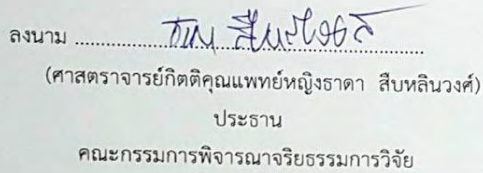 ลงนาม ........................................................
(ศาสตราจารย์กิตติคุณแพทย์หญิงธาดา สืบหลินวงศ์)
ประธาน
คณะกรรมการพิจารณาจริยธรรมการวิจัย